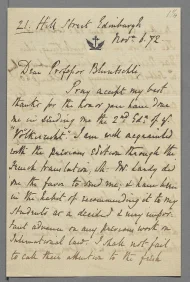 21. Hill Street Edinburgh
Novr 8. 72
Dear Professor Bluntschli
I pray accept my best
thanks for the honor you have done
me in sending me the 2nd Edn. of yr
"Völkerrecht". I am well acquainted
with the previous edition through the
French translation wh. Mr Lardy did
me the favor to send me, & have been
in the habit of recommending it to my
Students as a decided & very important
advance on any previous work on
International law. I shall not fail
to call their attention to the fresh